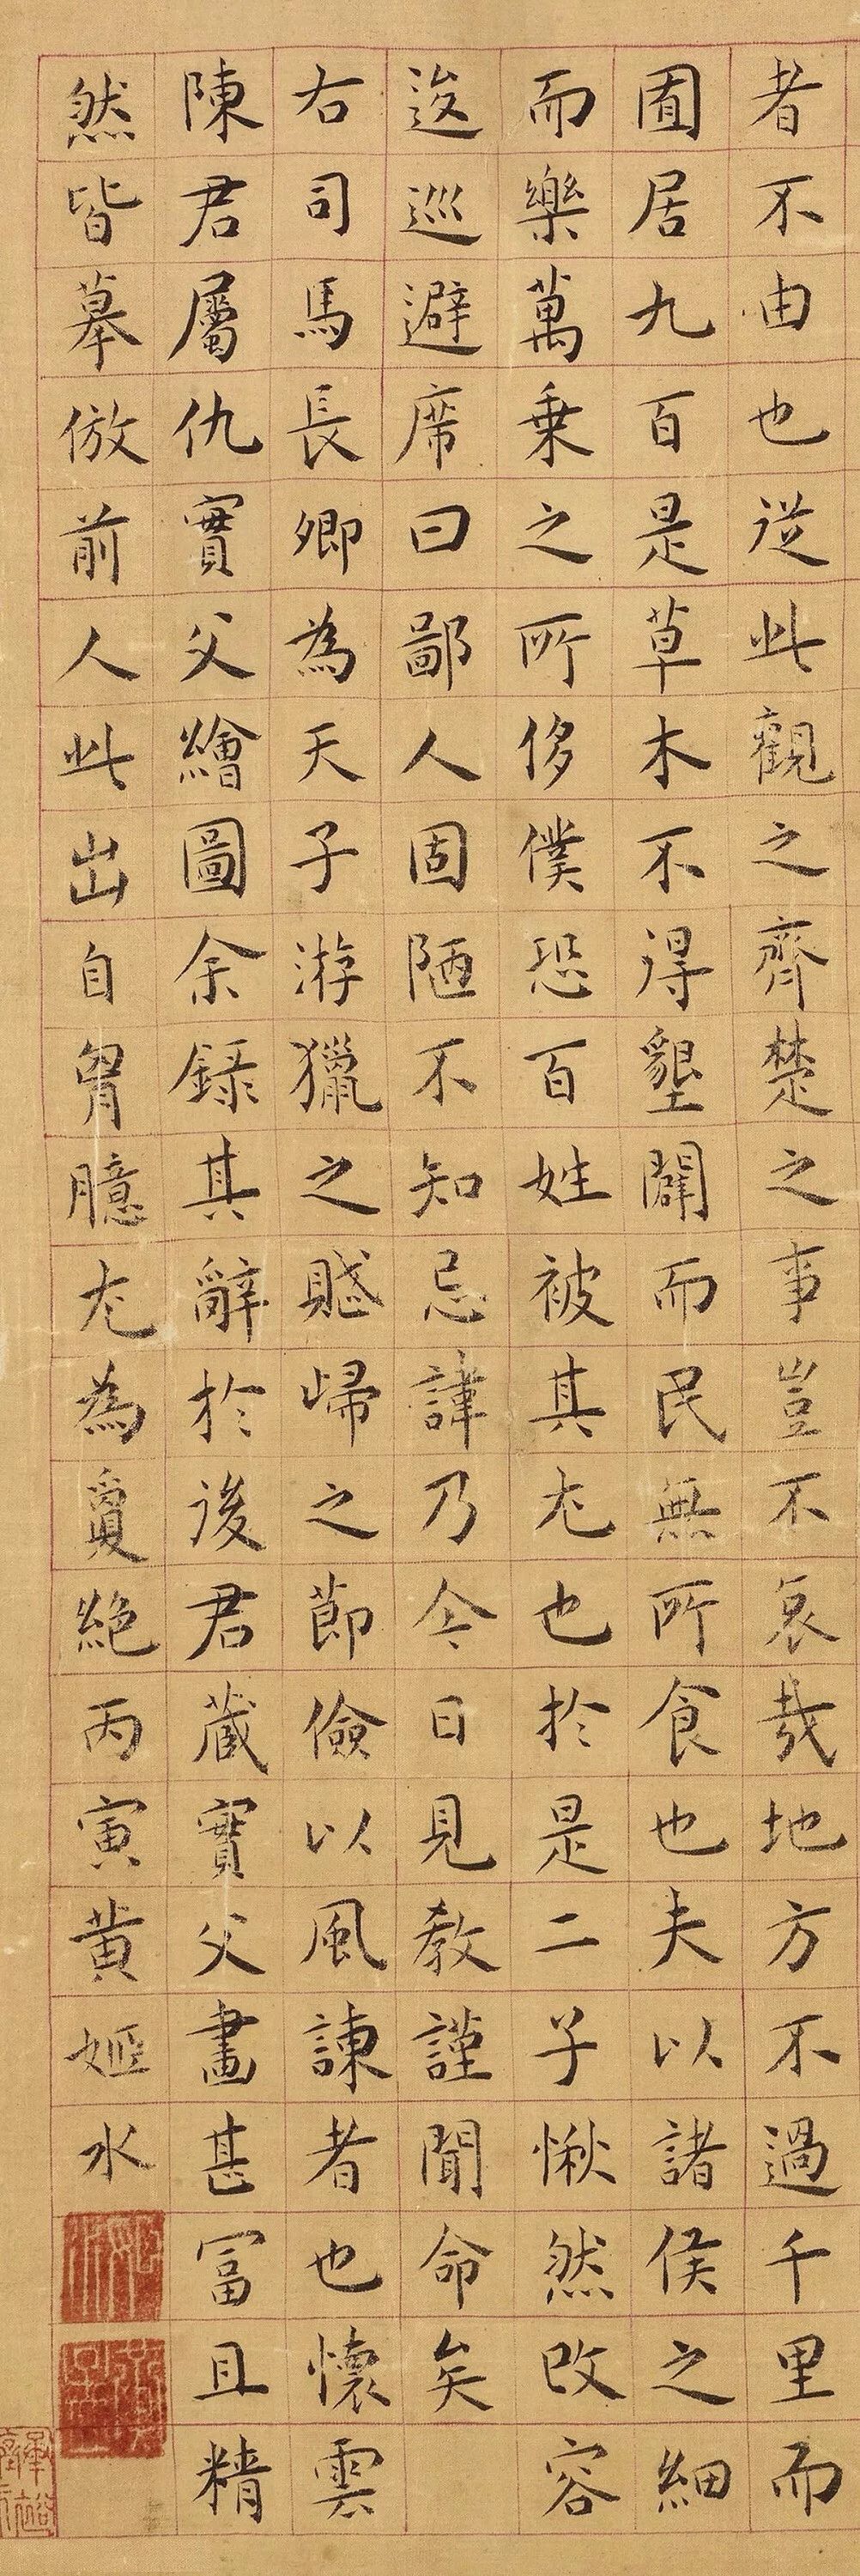 者不由也從此觀之齊楚之事豈不哀哉地方不過千里而
囿居九百是草木不得墾闢而民無所食也夫以諸侯之細
而樂萬乗之所侈僕恐百姓被其尤也於是二子愀然改容
逡巡避席曰鄙人固陋不知忌諱乃今日見教謹聞命矣
右司馬長卿為天子游獵之賦歸之節儉以風諫者也懷雲
陳君屬仇實父繪圖余録其辭於後君藏實父畫甚冨且精
然皆摹倣前人此出自胷臆尤為夐絶丙寅黄姬水